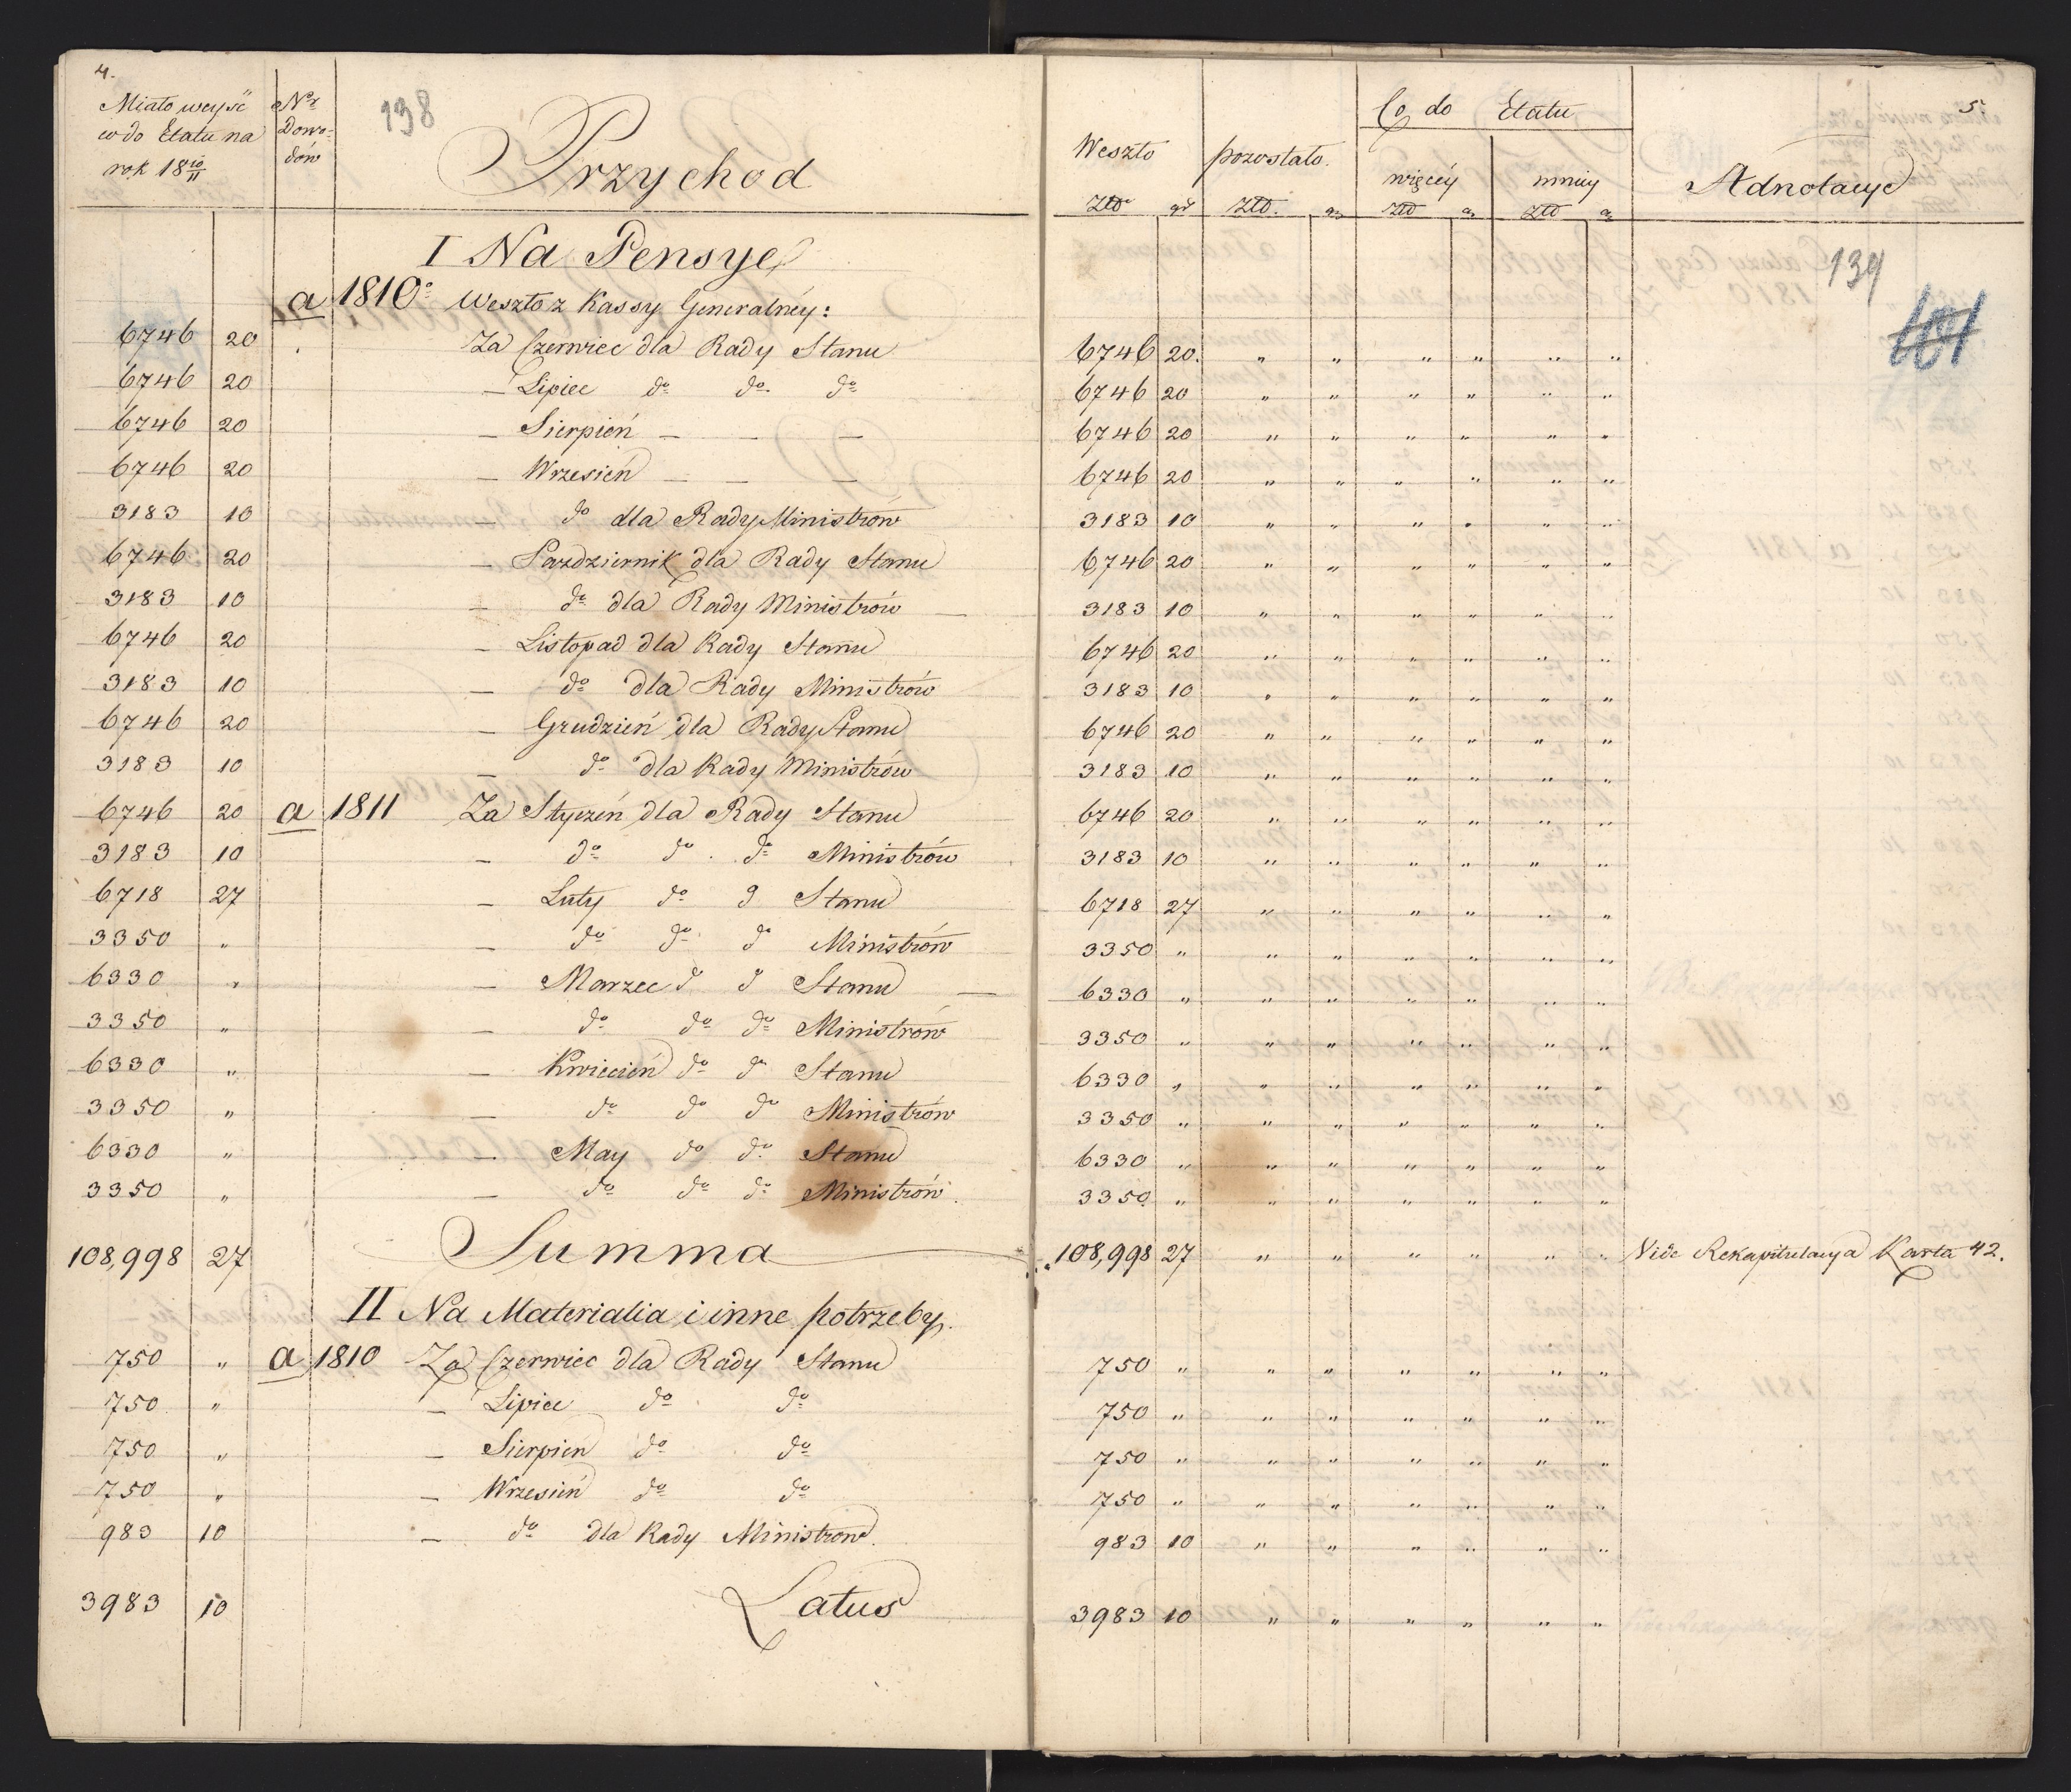 4.
Miało weyść
wdo Etatu na
rok 18 10/11
Nr
Dowo-
dów
138
Przychod
I Na Pensye
a 1810 Weszło z Kassy Generalnéy:
6746 20 Za Czerwiec dla Rady Stanu
6746 20 — Lipiec do do do
6746 20 — Sierpień — — —
6746 20 — Wrzesień — — —
3183 10 — do dla Rady Ministrów
6746 20 — Pazdziernik dla Rady Stanu
3183 10 — do dla Rady Ministrów —
6746 20 — Listopad dla Rady Stanu
3183 10 — do dla Rady Ministrów
6746 20 — Grudzień dla Rady Stanu
3183 10 — do dla Rady Ministrów
6746 20 a 1811 Za Styczeń dla Rady Stanu
3183 10 — do do do Ministrów
6718 27 — Luty do d Stanu
3350 " — do do do Ministrów
6330 " — Marzec d d Stanu —
3350 " — do do do Ministrów
6330 " — Kwiecień do do Stanu
3350 " — do do do Ministrów
6330 " — May do do Stanu
3350 " — do do do Ministrów.
108,998 27 Summa
II Na Materialia i inne potrzeby.
750 " a 1810 Za Czerwiec dla Rady Stanu
750 " — Lipiec do do
750 " — Sierpień do do
750 " — Wrzesień do do
983 10 — do dla Rady Ministrow.
3983 10 Latus
5.
Weszło
pozostało.
Co do Etatu
więcéy
mniéy
Adnotacye
Złо gr Złо. gr Złо gr Złо gr
139
101
6746 20 " " " " " "
6746 20 " " " " " "
6746 20 " " " " " "
6746 20 " " " " " "
3183 10 " " " " " "
6746 20 " " " " " "
3183 10 " " " " " "
6746 20 " " " " " "
3183 10 " " " " " "
6746 20 " " " " " "
3183 10 " " " " " "
6746 20 " " " " " "
3183 10 " " " " " "
6718 27 " " " " " "
3350 " " " " " " "
6330 " " " " " " "
3350 " " " " " " "
6330 " " " " " " "
3350 " " " " " " "
6330 " " " " " " "
3350 " " " " " " "
108,998 27 " " " " " " Vide Rekapitulacya Karta 42.
750 " " " " " " "
750 " " " " " " "
750 " " " " " " "
750 " " " " " " "
983 10 " " " " " "
3983 10 " " " " " "